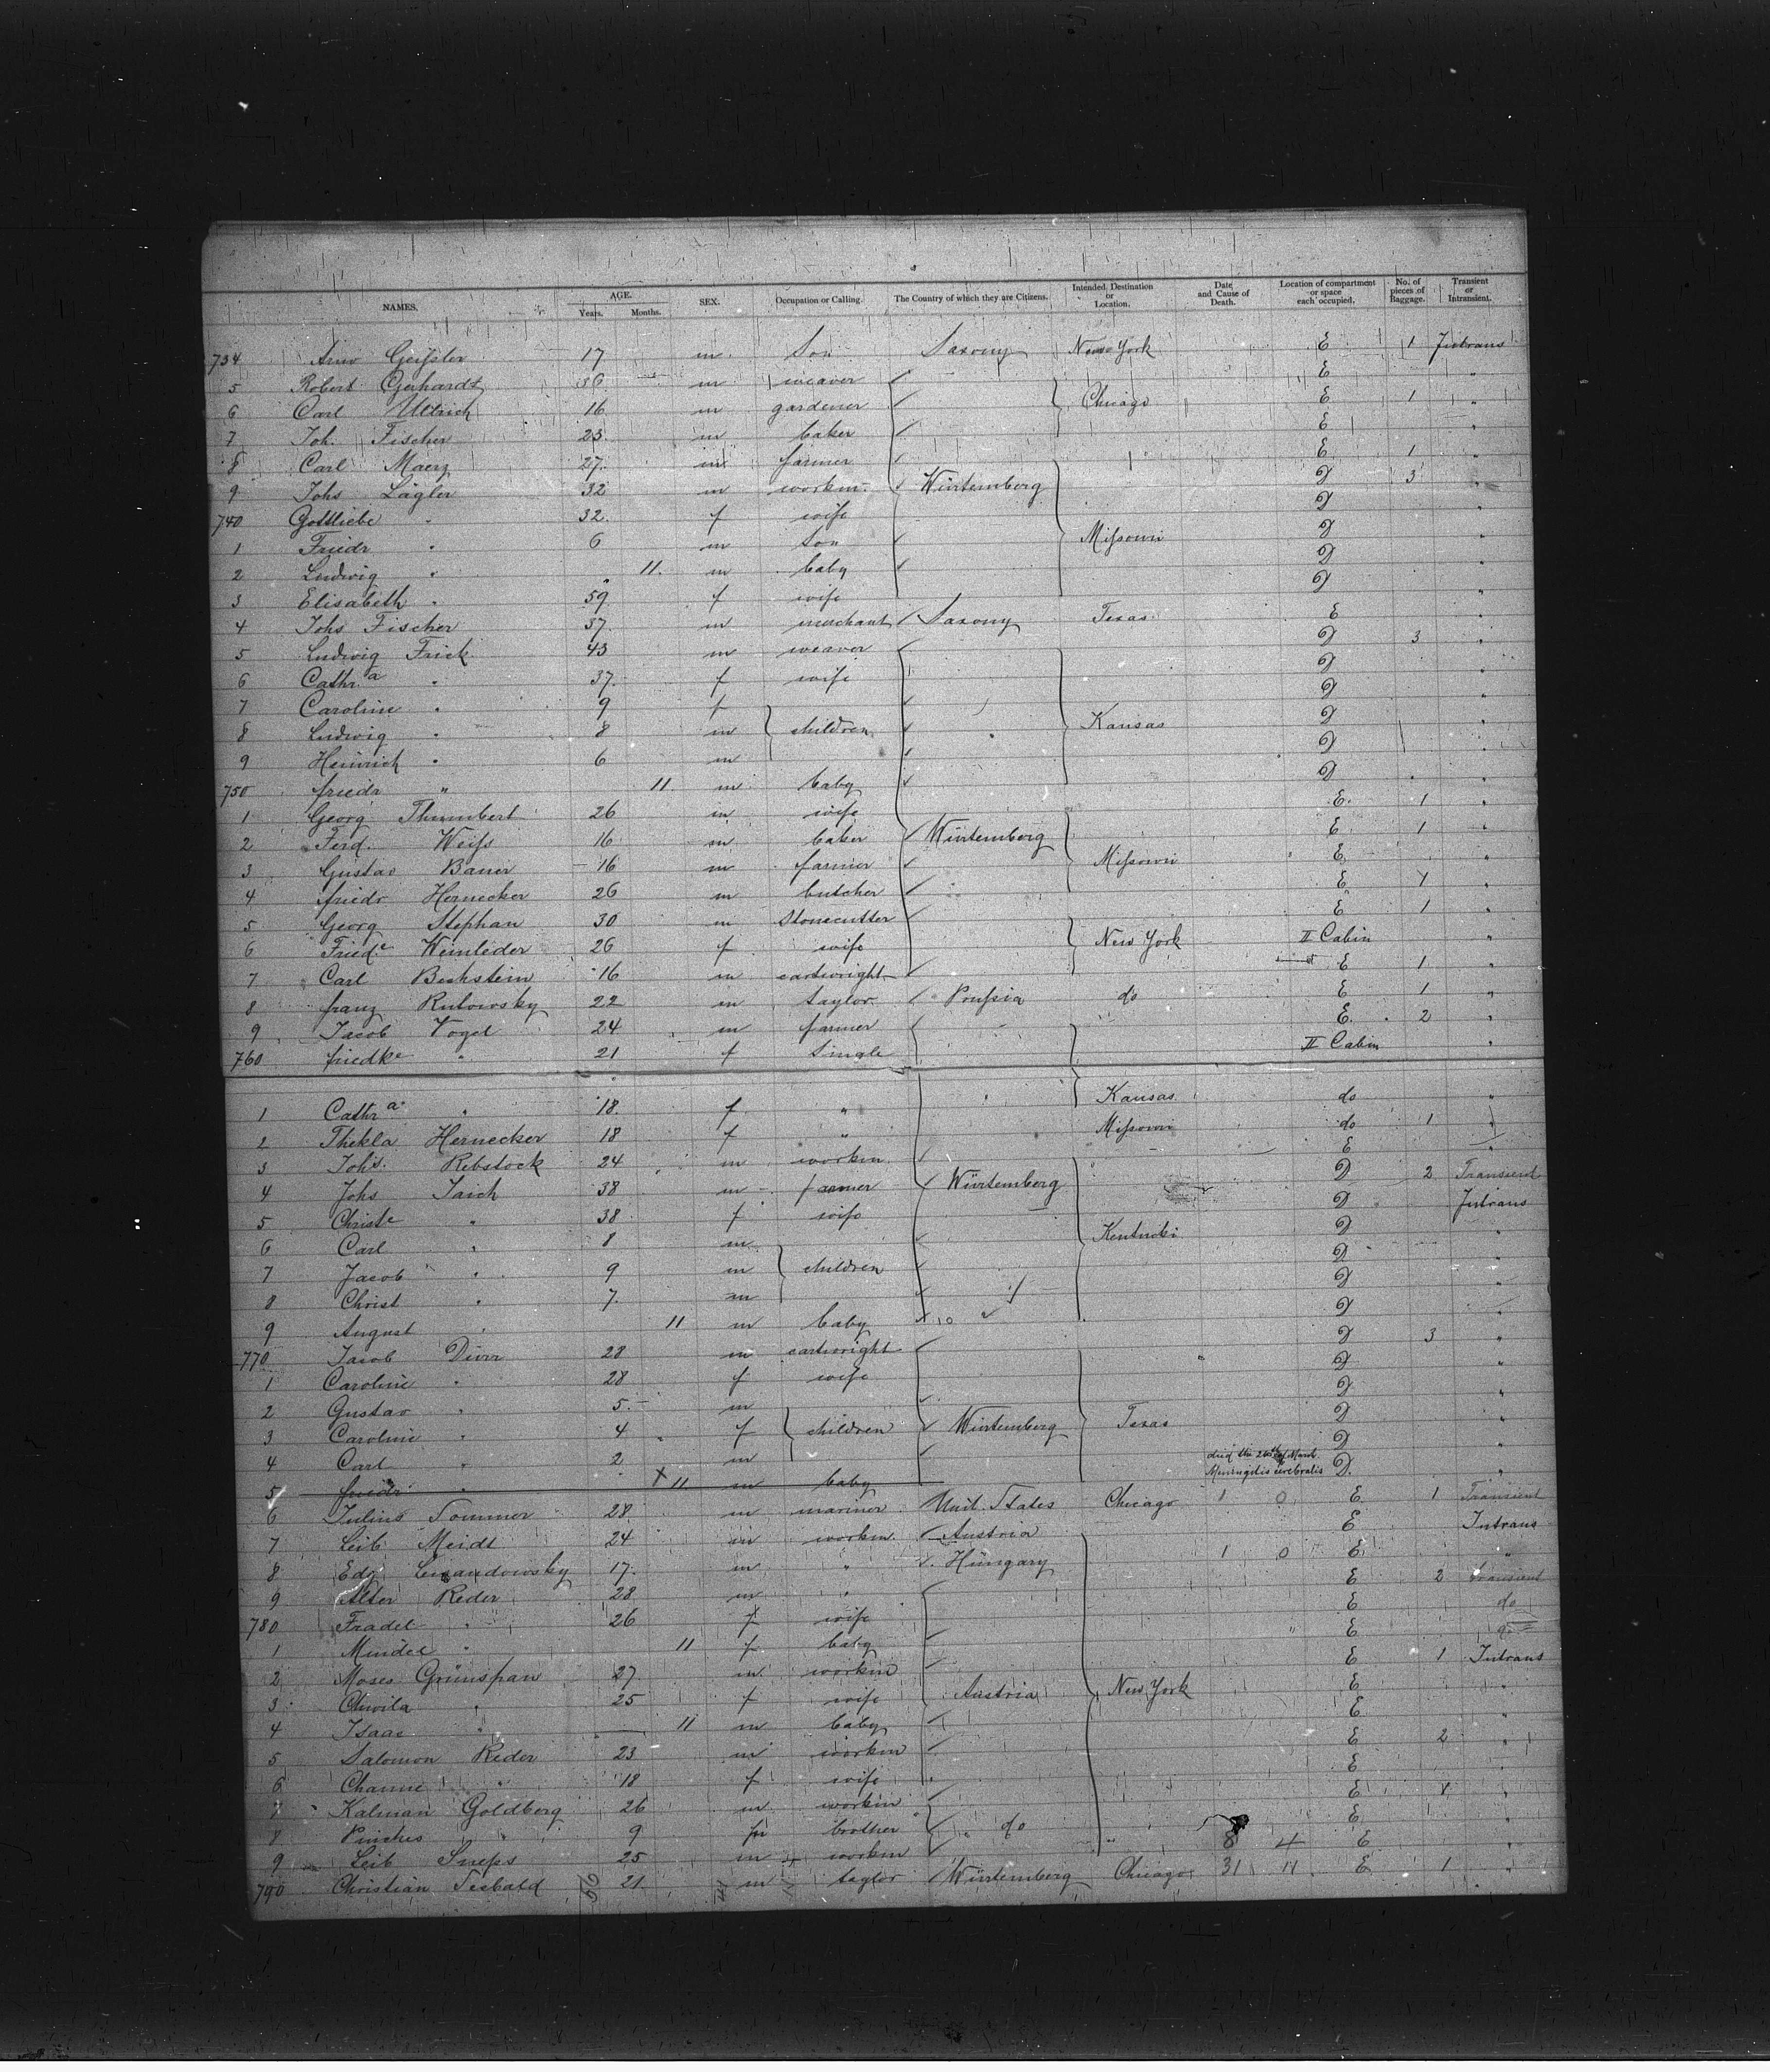 NAMES. AGE. Years. Months. SEX. Occupation or Calling. The Country of which they are Citizens. Intended Destination or Location. Date and Cause of Death. Location of compartment or space each occupied. No. of pieces of Baggage. Transient or Intransient.
734 Arno Geißler 17 m Son Saxony New York E 1 Intrans
5 Robert Gerhardt 36 m weaver E "
6 Carl Ullrich 16 m gardener Chicago E 1 "
7 Joh. Fischer 23 m baker E "
8 Carl Maerz 27 m farmer E 1 "
9 Johs Lägler 32 m workm. Würtemberg D 3 "
740 Gottliebe " 32 f wife D "
1 Friedr " 6 m Son Mißouri D "
2 Ludwig " 11 m baby D "
3 Elisabeth " 59 f wife D "
4 Johs Fischer 37 m merchant Saxony Texas E "
5 Ludwig Frick 43 m weaver D 3 "
6 Cathr.a " 37 f wife D "
7 Caroline " 9 f D "
8 Ludwig " 8 m children Kansas D "
9 Heinrich " 6 m D "
750 friedr " 11 m baby D "
1 Georg Thumbert 26 m wife E 1 "
2 Ferd. Weifs 16 m baker Würtemberg E 1 "
3 Gustav Bauer 16 m farmer Mißouri E "
4 friedr Hernecker 26 m butcher E 1 "
5 Georg Stephan 30 m Stonecutter E 1 "
6 Fried.e Weinleder 26 f wife New York II Cabin "
7 Carl Bechstein 16 m cartwright E 1 "
8 franz Rutowsky 22 m taylor Prußia do E 1 "
9 Jacob Vogel 24 m farmer E 2 "
760 friedke " 21 f Single II Cabin "
1 Cathr a " 18 f " Kansas do "
2 Thekla Hernecker 18 f " Mißouri do 1 "
3 Johs. Rebstock 24 m workm E "
4 Johs Taich 38 m farmer Würtemberg D 2 Transient
5 Christe " 38 f wife D Intrans
6 Carl " 8 m Kentucki D "
7 Jacob " 9 m children D "
8 Christ " 7 m D "
9 August " 11 m baby D "
770 Jacob Dürr 28 m cartwright D 3 "
1 Caroline " 28 f wife D "
2 Gustav " 5 m D "
3 Caroline " 4 f children Würtemberg Texas D "
4 Carl " 2 m D "
5 friedr " 11 m baby died the 26th of March Meningitis cerebralis D "
6 Julius Sommer 28 m mariner Unit. States Chicago 1 0 E 1 Transient
7 Leib Meidt 24 m workm. Austria E Intrans
8 Edg Lewandowsky 17 m " Hungary 1 0 E "
9 Alter Reder 28 m " E 2 Transient
780 Fradel " 26 f wife E do
1 Mindel " 11 f baby E do
2 Moses Grünspan 27 m workm E 1 Intrans
3 Chwila " 25 f wife Austria New York E "
4 Isaac " 11 m baby E "
5 Salomon Reder 23 m workm E 2 "
6 Channe " 18 f wife E "
7 Kalman Goldberg 26 m workm E 1 "
8 Pinches " 9 m brother " do E "
9 Leib Sneps 25 m workm " 8 4 E "
790 Christian Seebald 21 m taylor Würtemberg Chicago 31 11 E 1 "